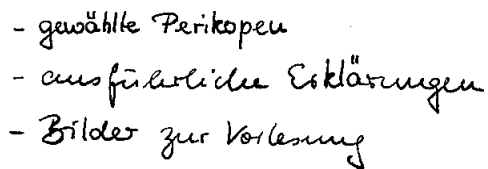 - gewählte Perikopen
- ausführliche Erklärungen
- Bilder zur Vorlesung